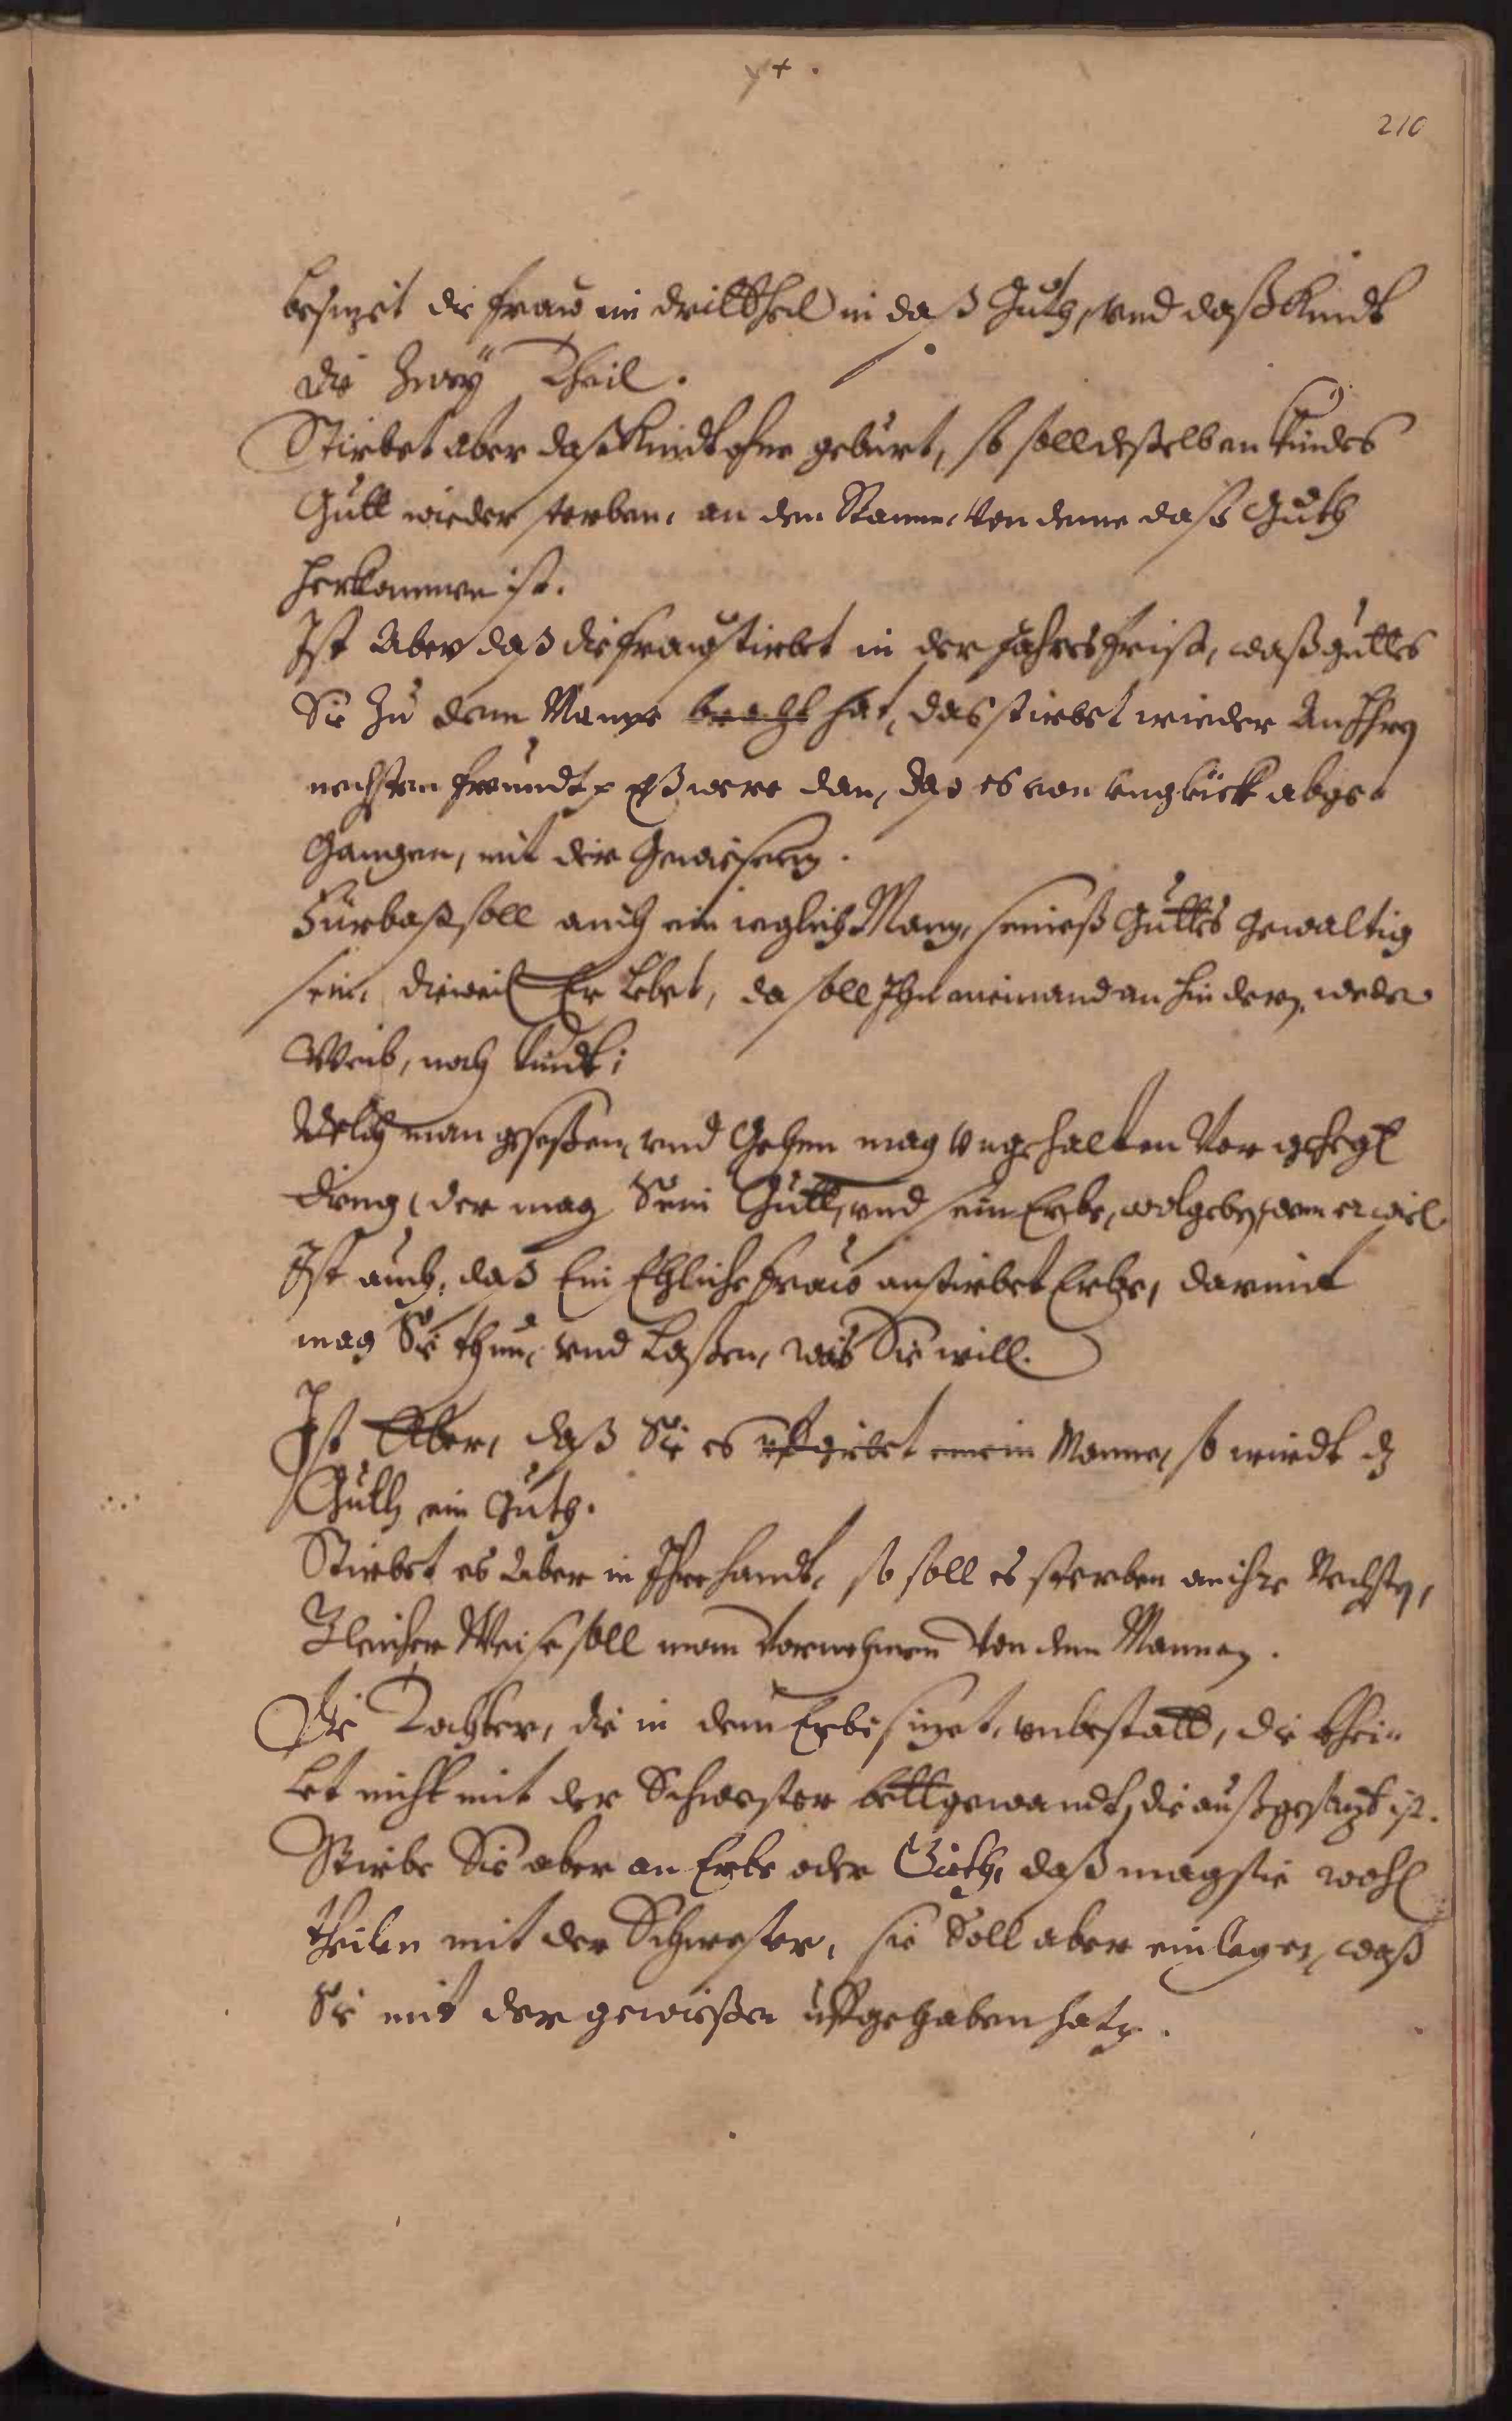 210
besizet die fraw ein drittheil in daß Guth, vnd daß Kindt
die Zwey Theil.
Stirbet aber daß Kindt ohne geburt, so soll deßelben kindes
Gutt wieder sterben, an den Stamm, von deme daß Guth
herkommen ist.
Ist Aber daß die fraw stirbet in der Jahres frist, waß guttes
Sie Zu dem Manne bracht hat, das stirbet wieder An Ihre
nechsten freundt, Eß were dan, daß es von vnglück abge-
gangen, mit der Gewissen.
Fürbaß soll auch ein ieglich Mann, seineß Guttes gewaltig
sein, dieweil Er Lebet, da soll Ihn niemand an hindern, weder
Weib, noch kindt;
Welch man geseßen, vnd Gehen mag vngehalten Vor gehegt
ding, der mag Sein Gutt, vnd sein Erbe, wol geben, wem er will
Ist auch, daß Ein Ehliche fraw anstirbet Erbe, darmit
mag Sie thun, vnd Laßen, was Sie will.
Ist Aber, daß Sie es vffgibet einem Manne, so wirdt dz
Guth ein Guth.
Stirbet es Aber in Ihrer handt, so soll es sterben an ihre Nechsten,
Gleicher Weise soll man vornehmen von dem Mannen.
Die Tochter, die in dem Erbe sizet, vnbestatt, die thei-
let nicht mit der Schwester bettgewandt, die außgesazt ist.
Stirbe Sie aber an Erbe oder Guth, daß mag sie wohl
theilen mit der Schwester, sie Soll aber einlegen, waß
Sie mit der gewißen uffgehaben hat.